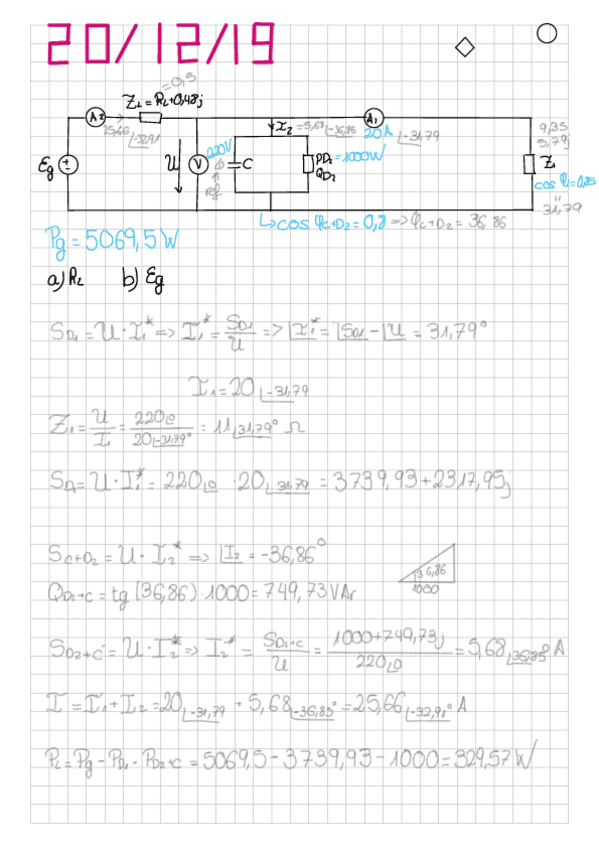 20/12/19
= 0,5
Z_L = R_L + 0,48j
A2
25,66 ∠-32,91
I_2 = 5,68 ∠-36,86
A1
20A ∠-31,79
Eg
U
220V
V
C
P_D2 = 1000W
Q_D2
ref
9,35
5,79j
Z_1
cos φ_1 = 0,85
31,79
↳ cos φ_C+D2 = 0,8 => φ_C+D2 = 36,86
Pg = 5069,5 W
a) R_L b) Eg
S_D1 = U · I_1* => I_1* = S_D1/U => ∠I_1* = ∠S_D1 - ∠U = 31,79°
I_1 = 20 ∠-31,79
Z_1 = U/I_1 = 220∠0 / 20∠-31,79° = 11 ∠31,79° Ω
S_D1 = U · I_1* = 220∠0 · 20∠31,79 = 3739,93 + 2317,95j
S_C+D2 = U · I_2* => ∠I_2 = -36,86°
36,86
1000
Q_D2+C = tg (36,86) · 1000 = 749,73 VAr
S_D2+C = U · I_2* => I_2* = S_D2+C/U = 1000+749,73j / 220∠0 = 5,68 ∠36,85° A
I = I_1 + I_2 = 20∠-31,79 + 5,68∠-36,85° = 25,66∠-32,91° A
P_L = Pg - P_D1 - P_D2+C = 5069,5 - 3739,93 - 1000 = 329,57 W